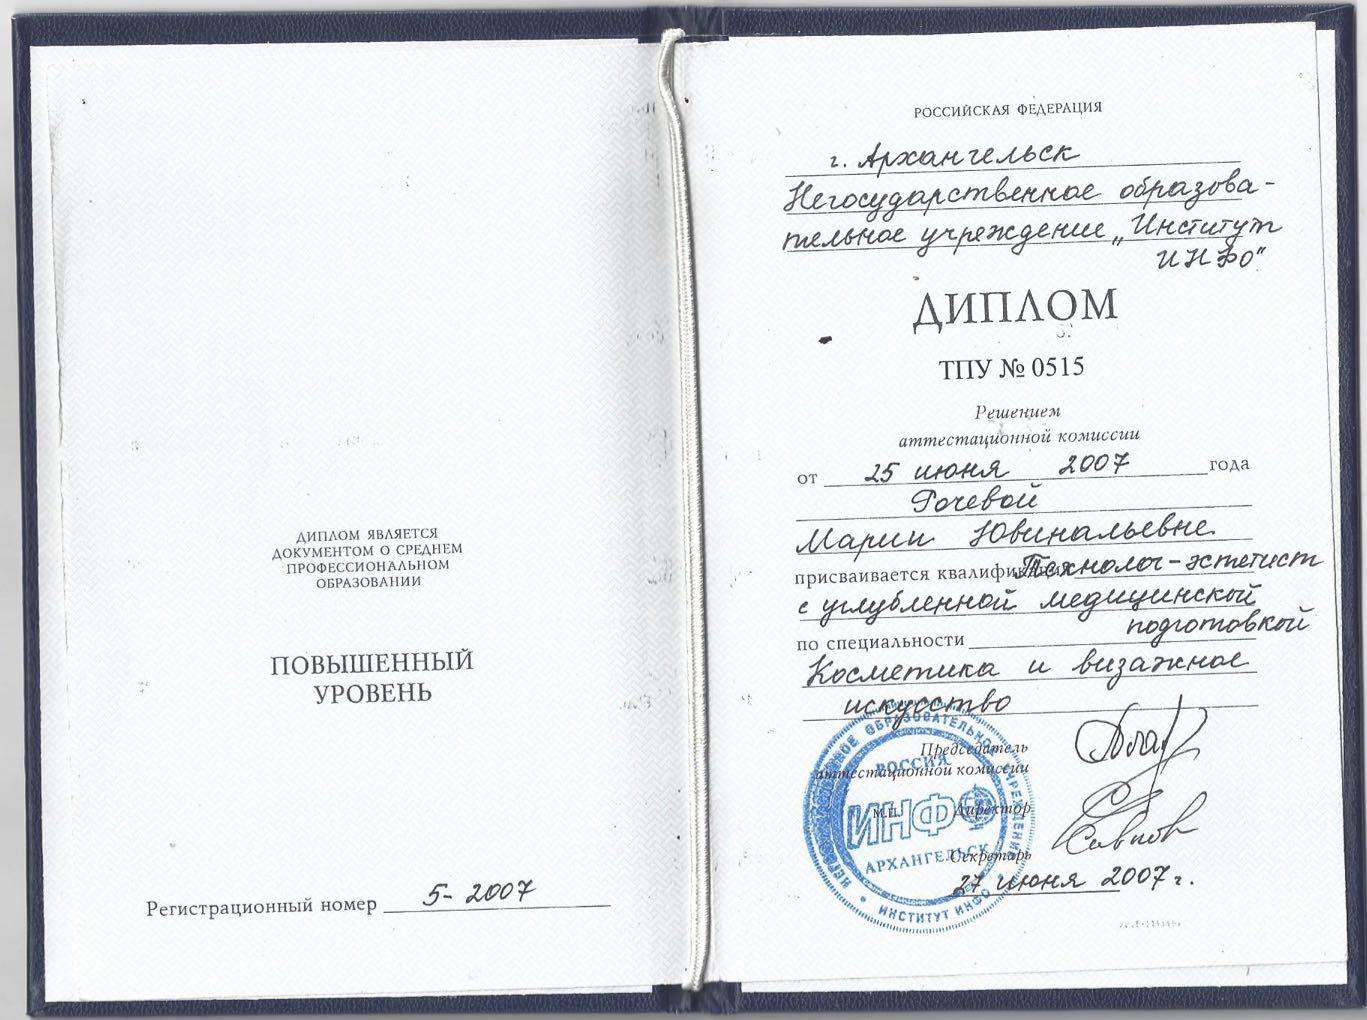 ДИПЛОМ ЯВЛЯЕТСЯ
ДОКУМЕНТОМ О СРЕДНЕМ
ПРОФЕССИОНАЛЬНОМ
ОБРАЗОВАНИИ
ПОВЫШЕННЫЙ
УРОВЕНЬ
Регистрационный номер 5-2007
РОССИЙСКАЯ ФЕДЕРАЦИЯ
г. Архангельск
Негосударственное образова-
тельное учреждение „Институт
ИНФО"
ДИПЛОМ
ТПУ № 0515
Решением
аттестационной комиссии
от 25 июня 2007 года
Рочевой
Марии Ювинальевне
присваивается квалификация Технолог-эстетист
с углубленной медицинской
подготовкой
по специальности
Косметика и визажное
искусство
Председатель
аттестационной комиссии
М.П. Директор
Секретарь
27 июня 2007 г.
НЕГОСУДАРСТВЕННОЕ ОБРАЗОВАТЕЛЬНОЕ УЧРЕЖДЕНИЕ
РОССИЯ
ИНФО
АРХАНГЕЛЬСК
ИНСТИТУТ ИНФО